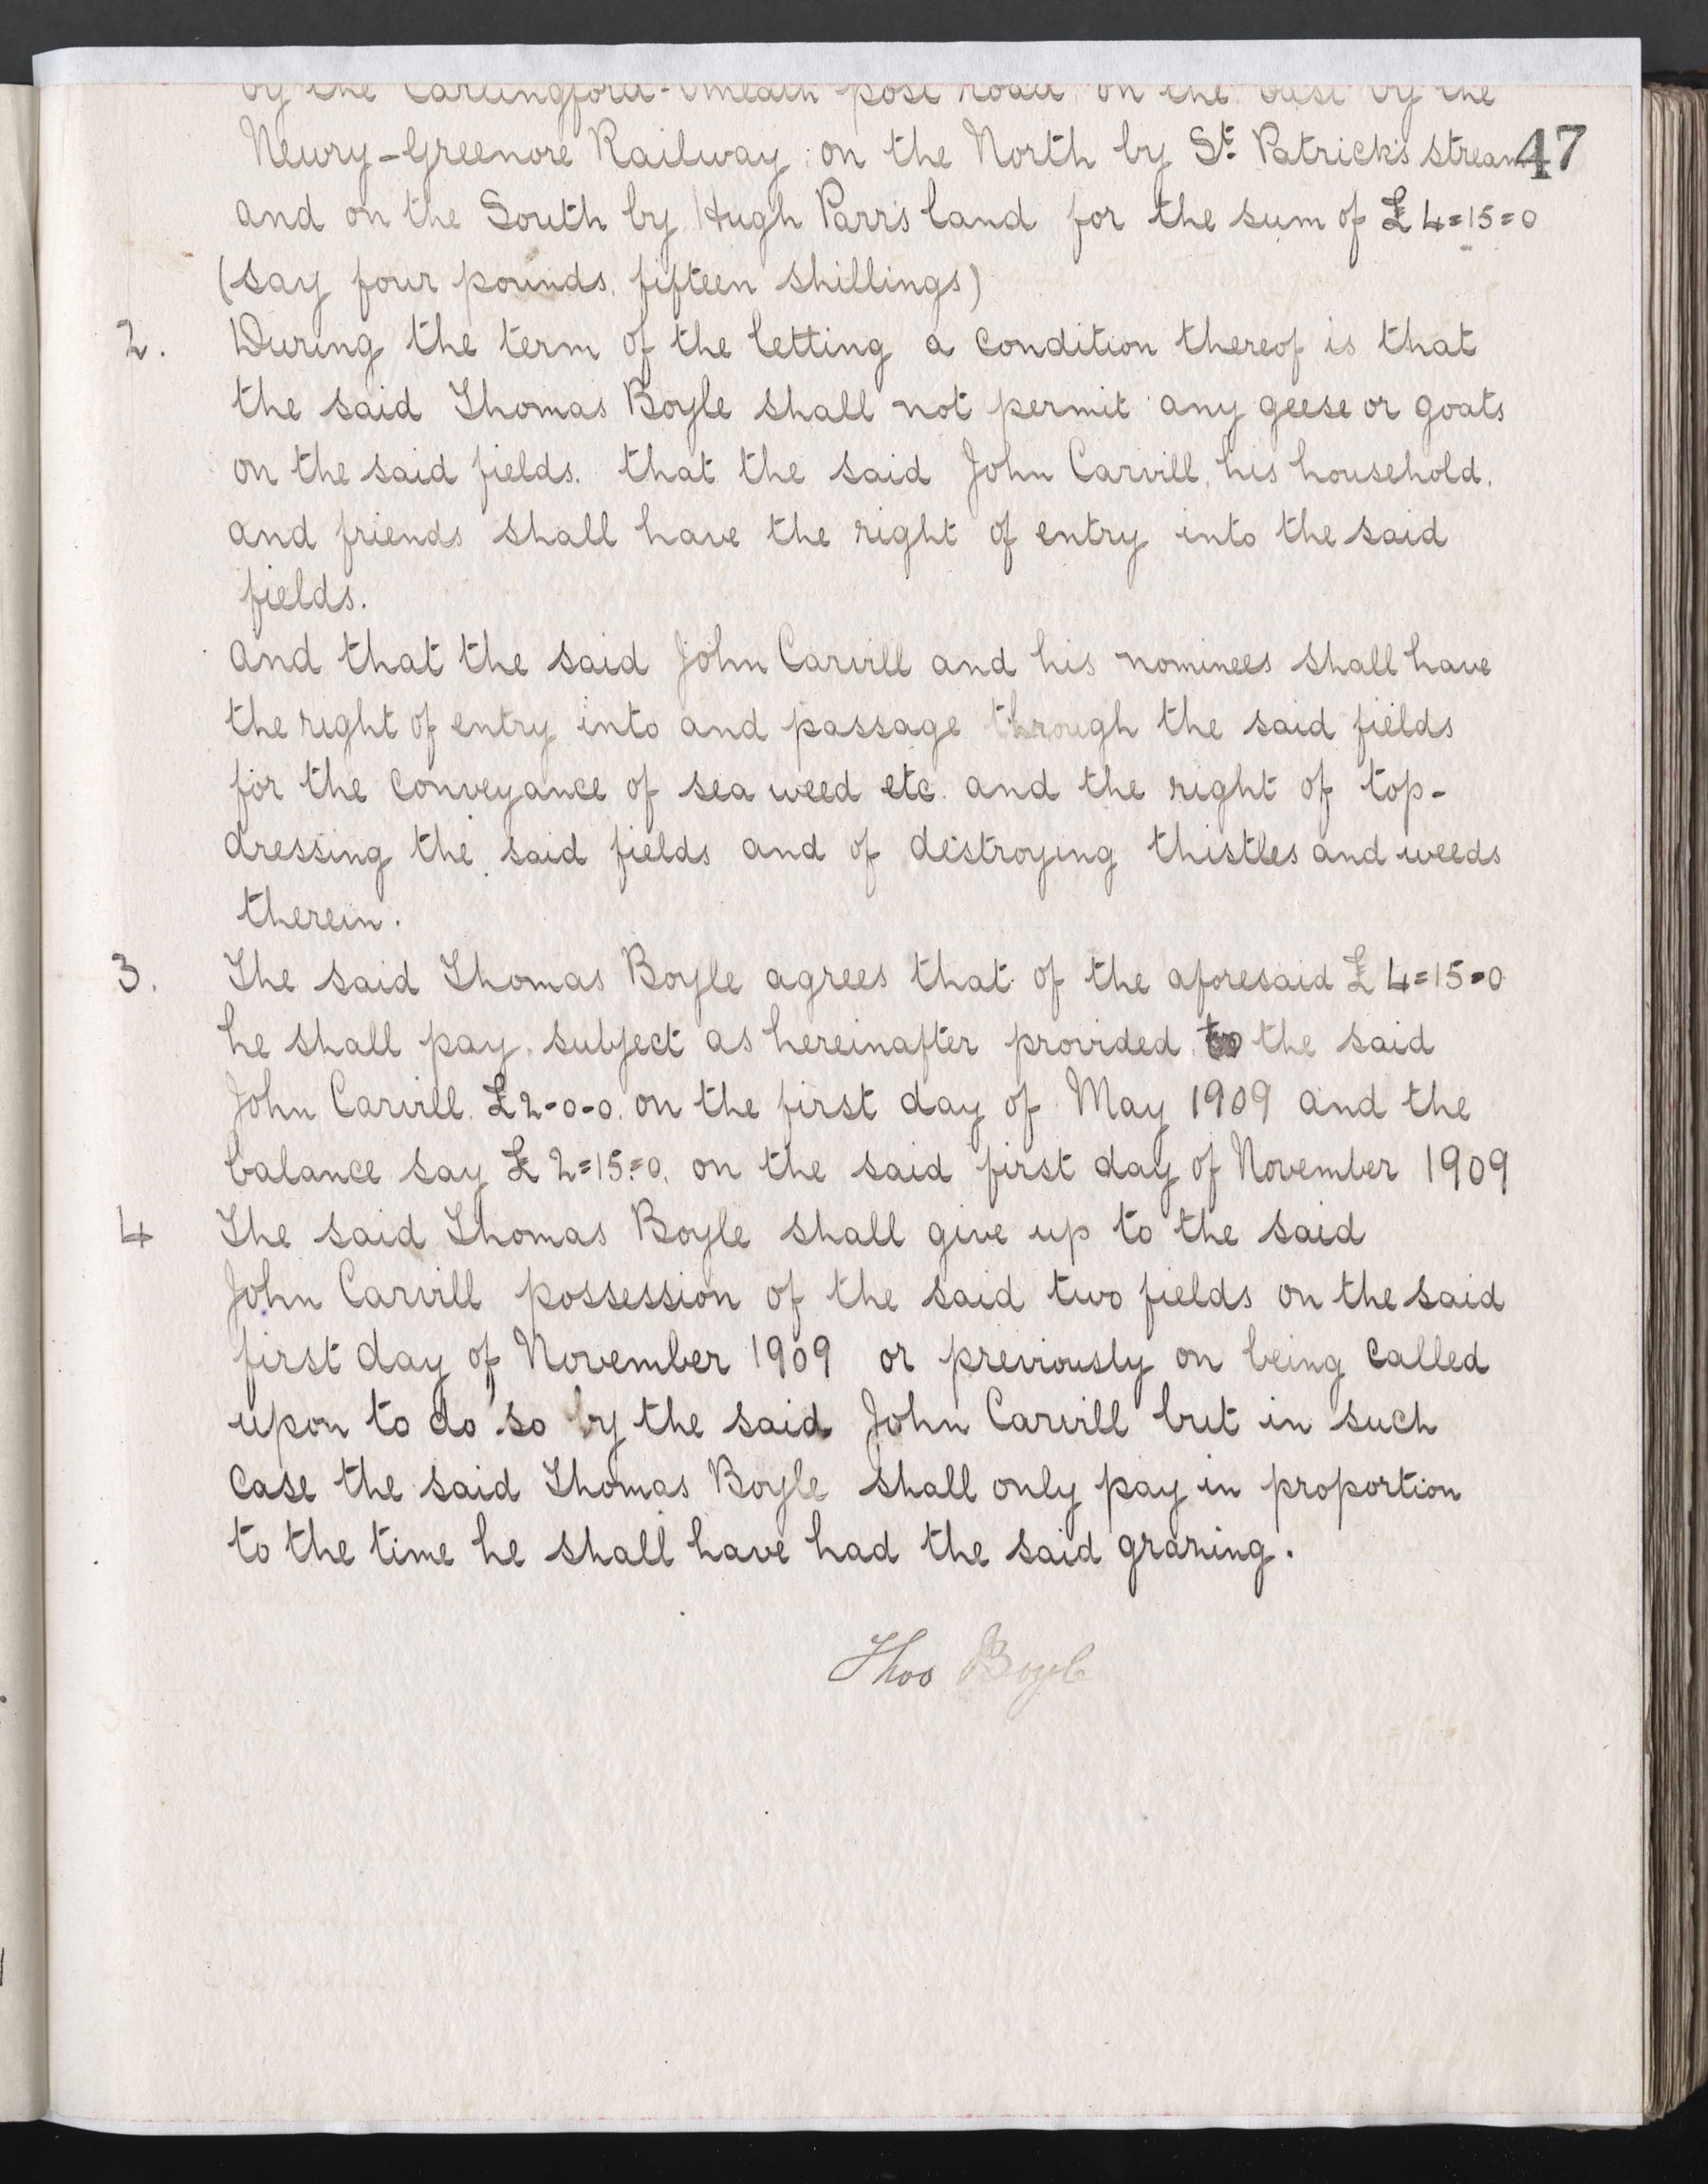 by the Carlingford-Omeath post road on the East by the
47
Newry-Greenore Railway, on the North by St. Patrick's stream
and on the South by Hugh Parr's land for the sum of £4=15=0
(say four pounds, fifteen shillings)
2. During the term of the letting a condition thereof is that
the said Thomas Boyle shall not permit any geese or goats
on the said fields. that the said John Carvill, his household,
and friends shall have the right of entry into the said
fields.
and that the said John Carvill and his nominees shall have
the right of entry into and passage through the said fields
for the conveyance of sea weed etc. and the right of top-
dressing the said fields and of destroying thistles and weeds
therein.
3. The said Thomas Boyle agrees that of the aforesaid £4=15=0
he shall pay, subject as hereinafter provided, to the said
John Carvill, £2-0-0, on the first day of May 1909 and the
balance say £2=15=0, on the said first day of November 1909
4 The said Thomas Boyle shall give up to the said
John Carvill possession of the said two fields on the said
first day of November 1909 or previously on being called
upon to do so by the said John Carvill but in such
case the said Thomas Boyle shall only pay in proportion
to the time he shall have had the said grazing.
Thos Boyle